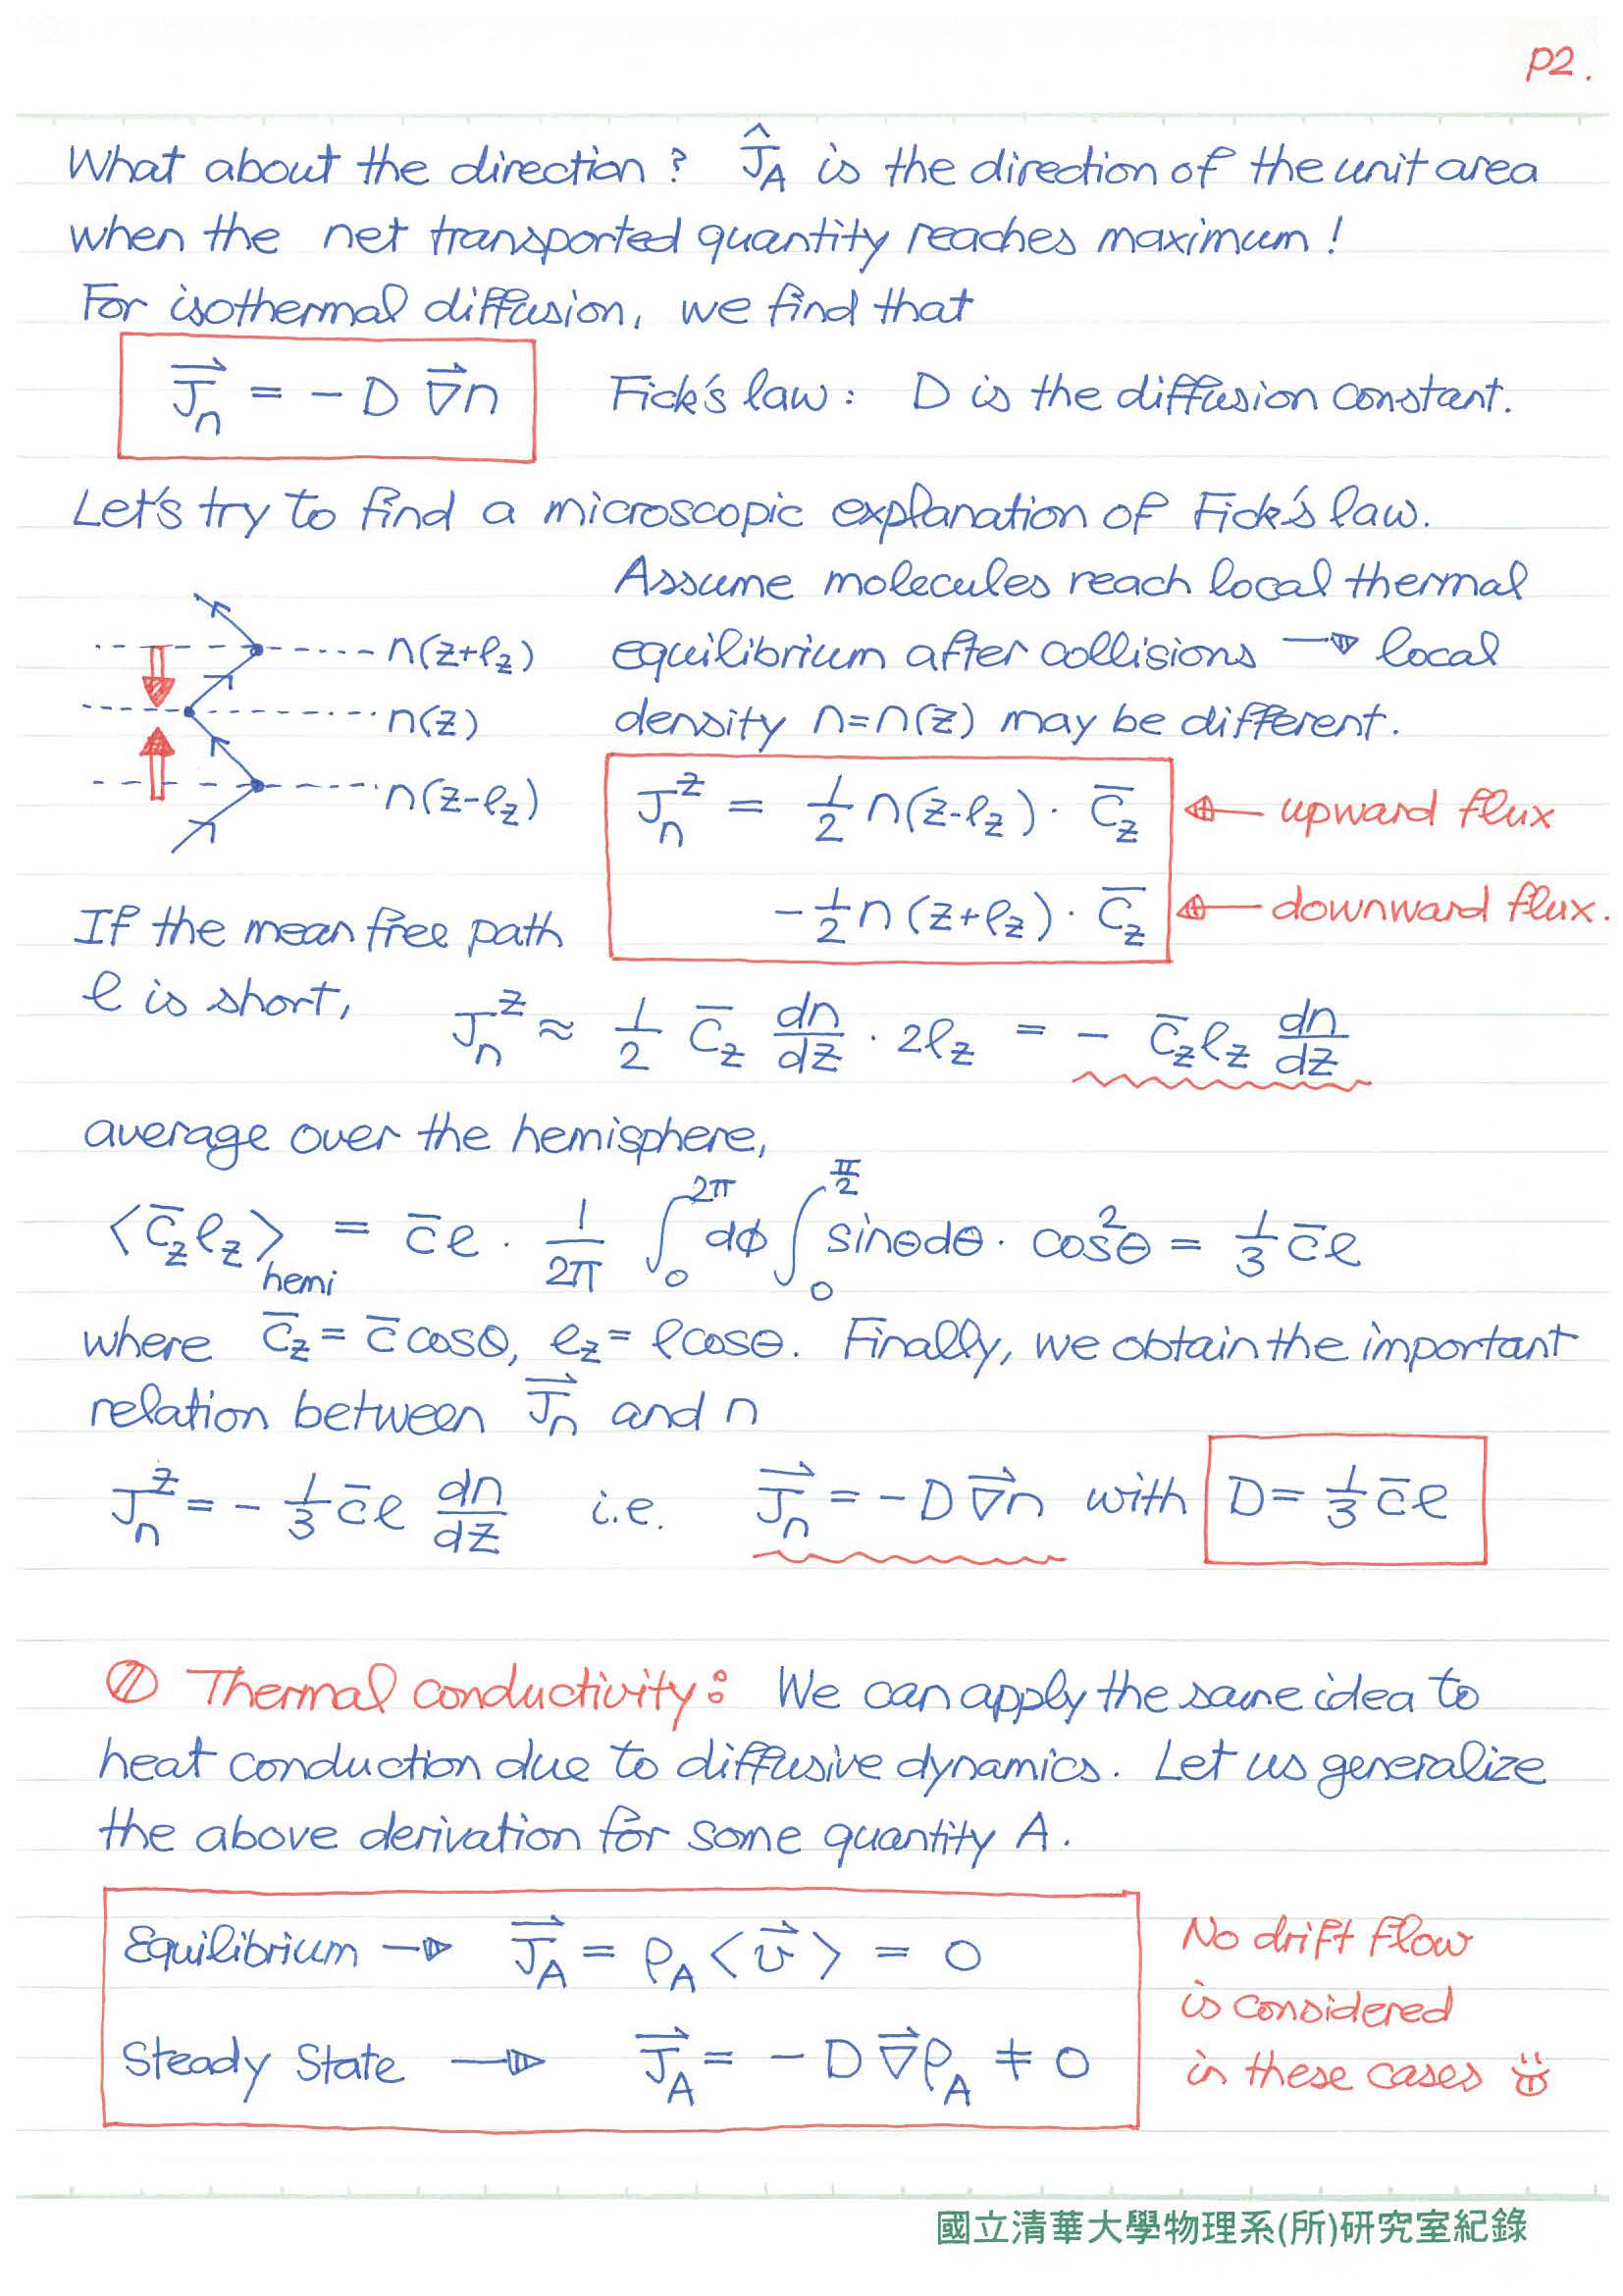 P2.
What about the direction? Ĵ_A is the direction of the unit area
when the net transported quantity reaches maximum!
For isothermal diffusion, we find that
J⃗_n = - D ∇⃗n Fick's law: D is the diffusion constant.
Let's try to find a microscopic explanation of Fick's law.
Assume molecules reach local thermal
n(z+ℓ_z) equilibrium after collisions → local
n(z) density n=n(z) may be different.
n(z-ℓ_z) J_n^z = 1/2 n(z-ℓ_z) · c̄_z ← upward flux
- 1/2 n(z+ℓ_z) · c̄_z ← downward flux.
If the mean free path
ℓ is short, J_n^z ≈ 1/2 c̄_z dn/dz · 2ℓ_z = - c̄_z ℓ_z dn/dz
average over the hemisphere,
⟨c̄_z ℓ_z⟩_hemi = c̄ℓ · 1/2π ∫_0^2π dϕ ∫_0^π/2 sinθdθ · cos²θ = 1/3 c̄ℓ
where c̄_z = c̄ cosθ, ℓ_z = ℓcosθ. Finally, we obtain the important
relation between J⃗_n and n
J_n^z = - 1/3 c̄ℓ dn/dz i.e. J⃗_n = - D ∇⃗n with D = 1/3 c̄ℓ
Thermal conductivity: We can apply the same idea to
heat conduction due to diffusive dynamics. Let us generalize
the above derivation for some quantity A.
Equilibrium → J⃗_A = ρ_A ⟨v⃗⟩ = 0
Steady State → J⃗_A = - D ∇⃗ρ_A ≠ 0
No drift flow
is considered
in these cases
國立清華大學物理系(所)研究室紀錄